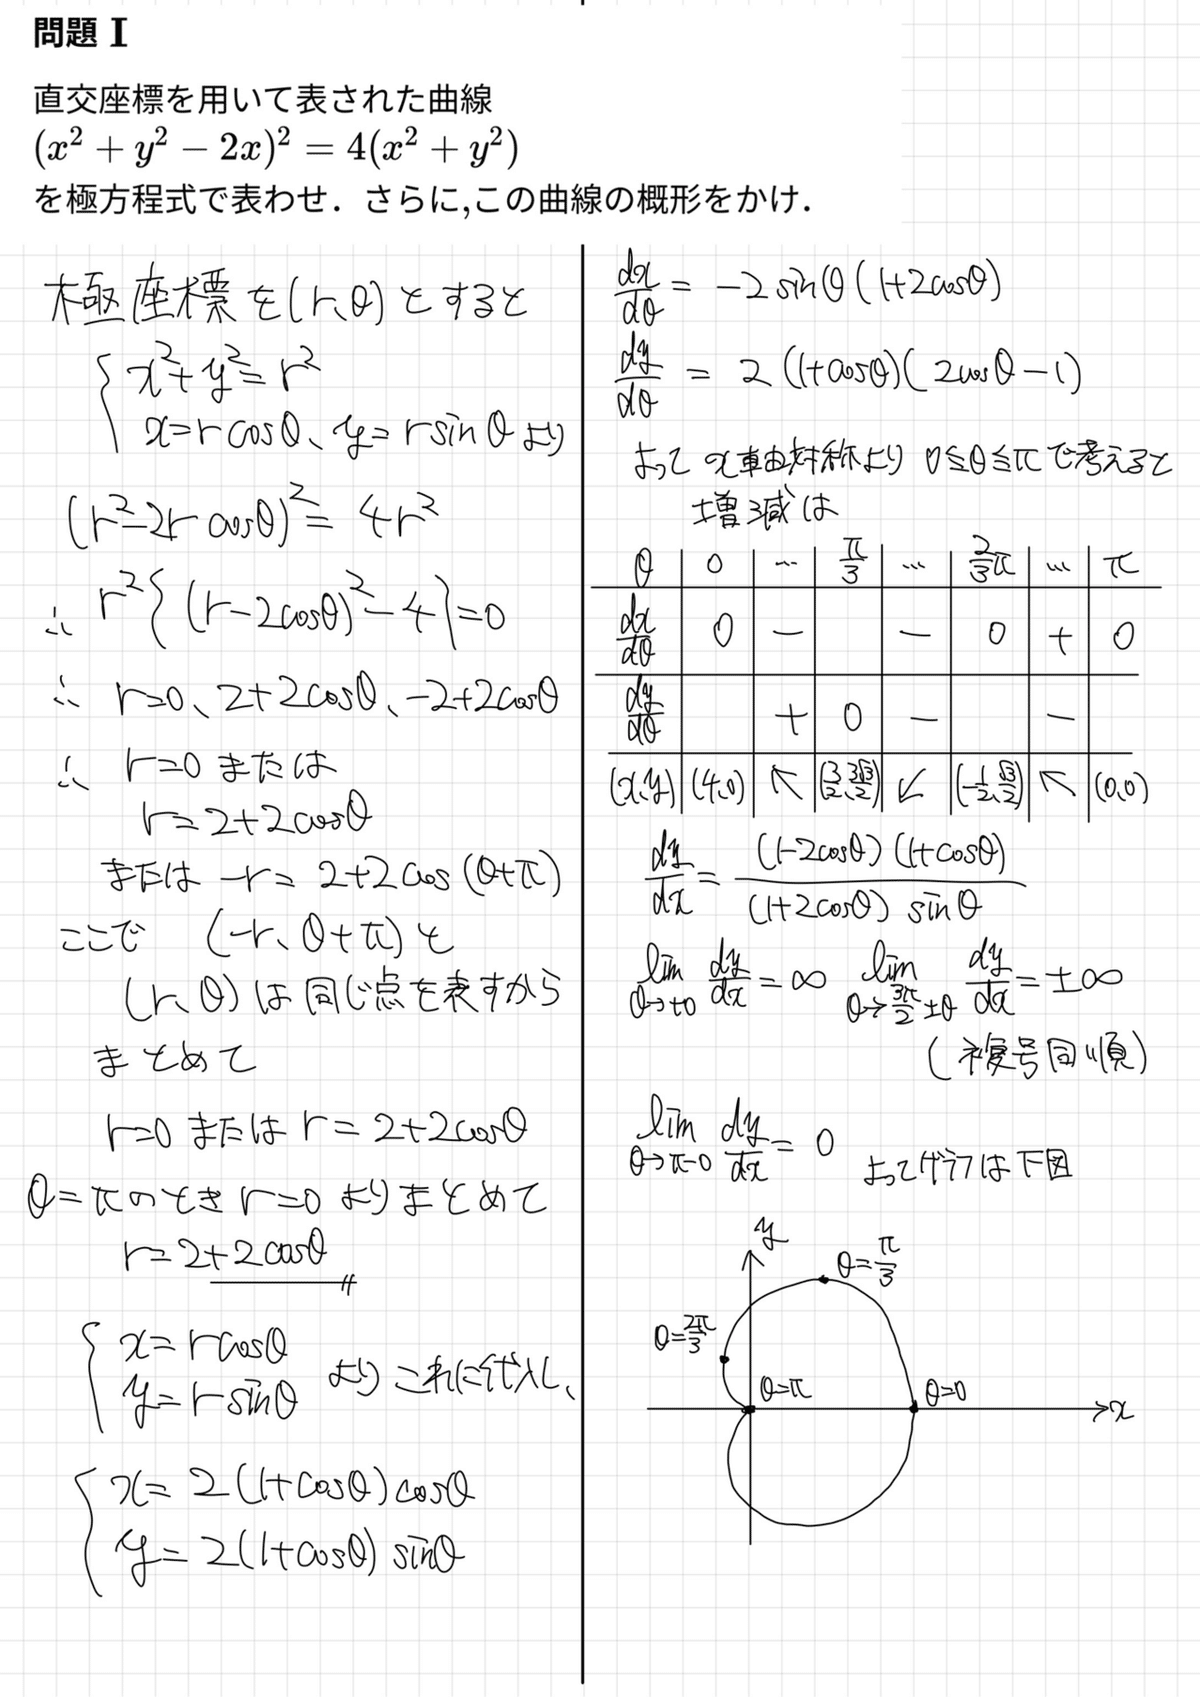 問題 I
直交座標を用いて表された曲線
(x² + y² − 2x)² = 4(x² + y²)
を極方程式で表わせ．さらに,この曲線の概形をかけ．
極座標を(r、θ)とすると
{ x²+y²=r²
x=rcosθ、y=rsinθより
(r²-2r cosθ)²= 4r²
∴ r²{(r-2cosθ)²-4}=0
∴ r=0、2+2cosθ、-2+2cosθ
∴ r=0または
r=2+2cosθ
または -r= 2+2cos(θ+π)
ここで (-r、θ+π)と
(r、θ)は同じ点を表すから
まとめて
r=0またはr=2+2cosθ
θ=πのときr=0よりまとめて
r=2+2cosθ
{ x=rcosθ
y=rsinθ よりこれに代入し、
{ x= 2(1+cosθ)cosθ
y= 2(1+cosθ) sinθ
dx/dθ = -2sinθ(1+2cosθ)
dy/dθ = 2(1+cosθ)(2cosθ-1)
よってx軸対称より 0≦θ≦πで考えると
増減は
θ | 0 | … | π/3 | … | 2/3π | … | π
dx/dθ | 0 | − | | − | 0 | + | 0
dy/dθ | | + | 0 | − | | − |
(x,y) | (4,0) | ↖ | (3/2、3√3/2) | ↙ | (-1/2、√3/2) | ↖ | (0,0)
dy/dx = (1-2cosθ)(1+cosθ)/(1+2cosθ) sinθ
lim θ→+0 dy/dx = ∞ lim θ→3π/2±θ dy/dx = ±∞
(複号同順)
lim θ→π-0 dy/dx = 0 よってグラフは下図
y
θ=π/3
θ=2π/3
θ=π
θ=0
x